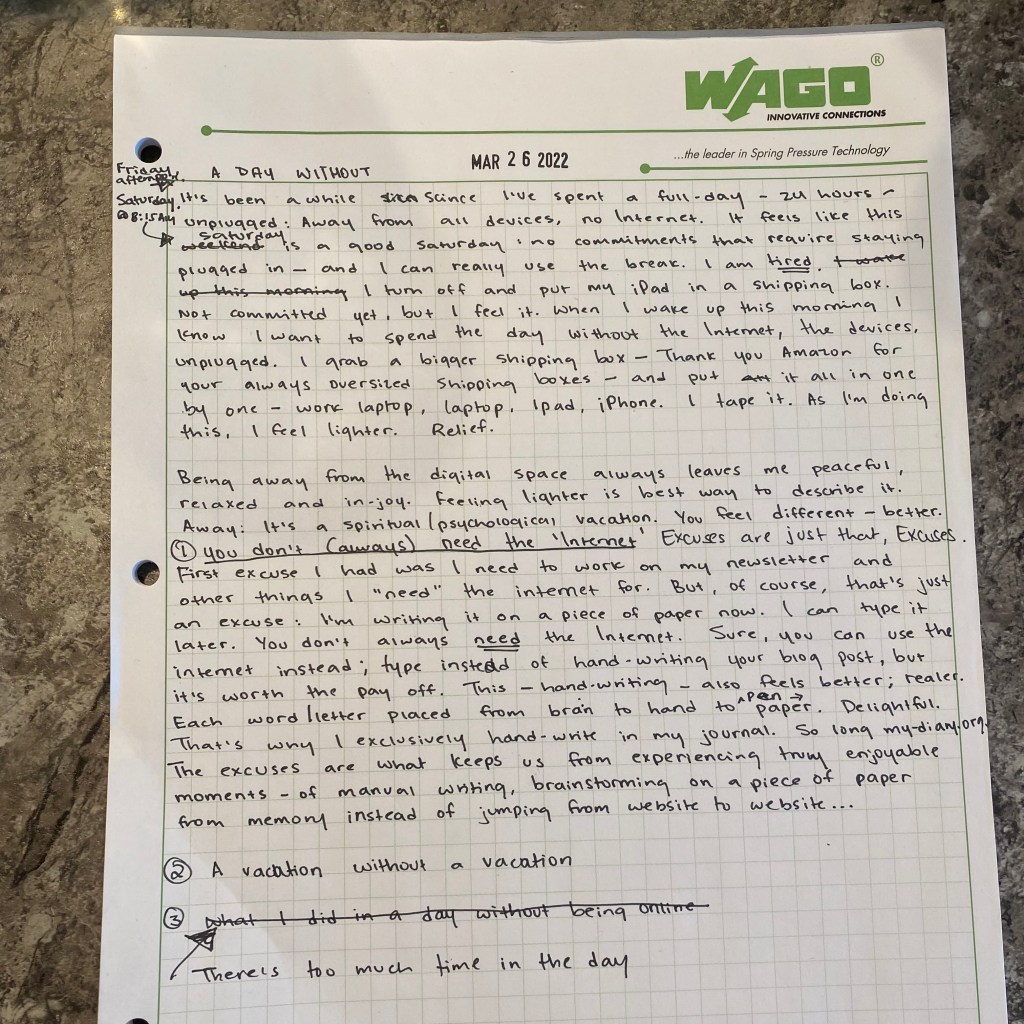 WAGO®
INNOVATIVE CONNECTIONS
...the leader in Spring Pressure Technology
MAR 26 2022
A DAY WITHOUT
Friday
afternoon.
Saturday.
@8:15AM
It's been a while since Scince I've spent a full-day – 24 hours –
unplugged: Away from all devices, no Internet. It feels like this
saturday
weekend is a good saturday: no commitments that require staying
plugged in – and I can really use the break. I am tired. I wake
up this morning I turn off and put my iPad in a shipping box.
Not committed yet, but I feel it. When I wake up this morning I
know I want to spend the day without the Internet, the devices,
unplugged. I grab a bigger shipping box – Thank you Amazon for
your always oversized shipping boxes – and put it all in one
by one – work laptop, laptop, Ipad, iPhone. I tape it. As I'm doing
this, I feel lighter. Relief.
Being away from the digital space always leaves me peaceful,
relaxed and in-joy. Feeling lighter is best way to describe it.
Away: It's a spiritual/psychological vacation. You feel different – better.
① you don't (always) need the 'Internet' Excuses are just that, Excuses.
First excuse I had was I need to work on my newsletter and
other things I "need" the internet for. But, of course, that's just
an excuse: I'm writing it on a piece of paper now. I can type it
later. You don't always need the Internet. Sure, you can use the
internet instead; type instead of hand-writing your blog post, but
it's worth the pay off. This – hand-writing – also feels better; realer.
Each word/letter placed from brain to hand to ^pen → paper. Delightful.
That's why I exclusively hand-write in my journal. So long my-diary.org.
The excuses are what keeps us from experiencing truly enjoyable
moments – of manual writing, brainstorming on a piece of paper
from memory instead of jumping from website to website...
② A vacation without a vacation
③ What I did in a day without being online
There's too much time in the day